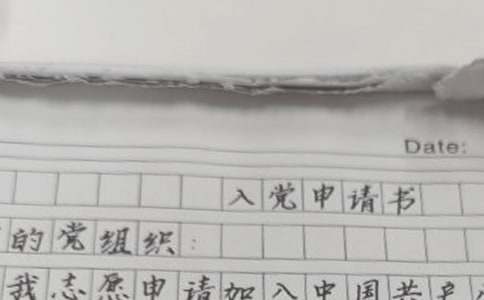 Date:
入党申请书
的党组织:
我志愿申请加入中国共